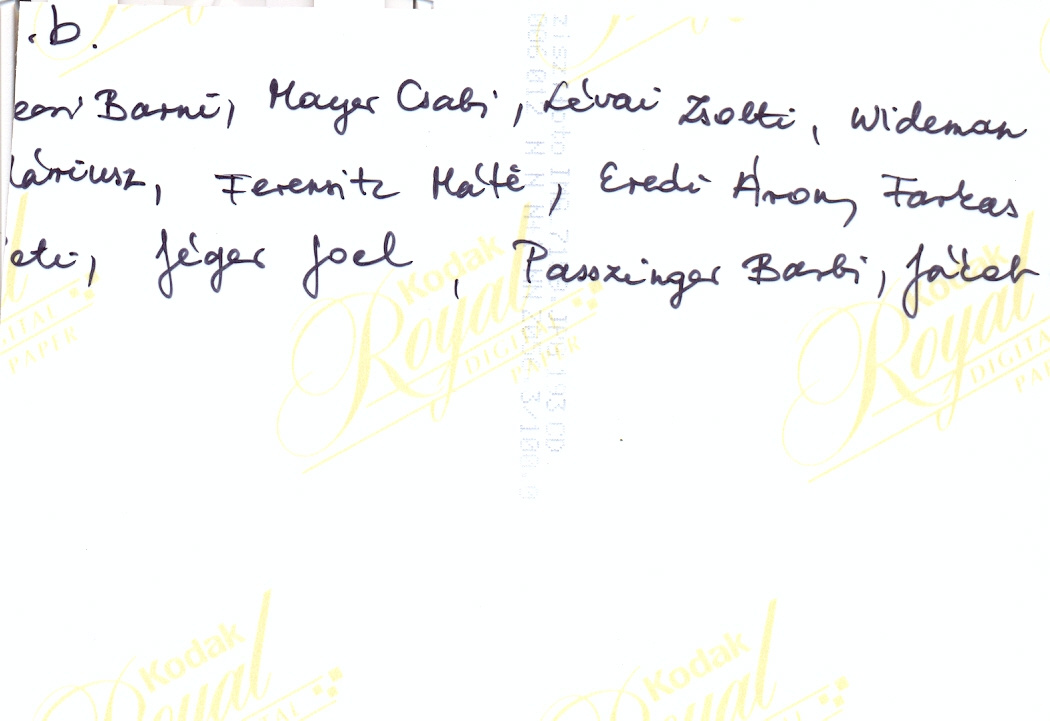 .b.
Barni, Mayer Csabi, Lévai Zsolti, Wideman
Ferensitz Máté, Eredi Áron, Farkas
Jéger Joel, Passzinger Barbi, Jákob
Kodak
Royal
DIGITAL
PAPER
Kodak
Royal
DIGITAL
PAPER
Kodak
Royal
Kodak
Royal